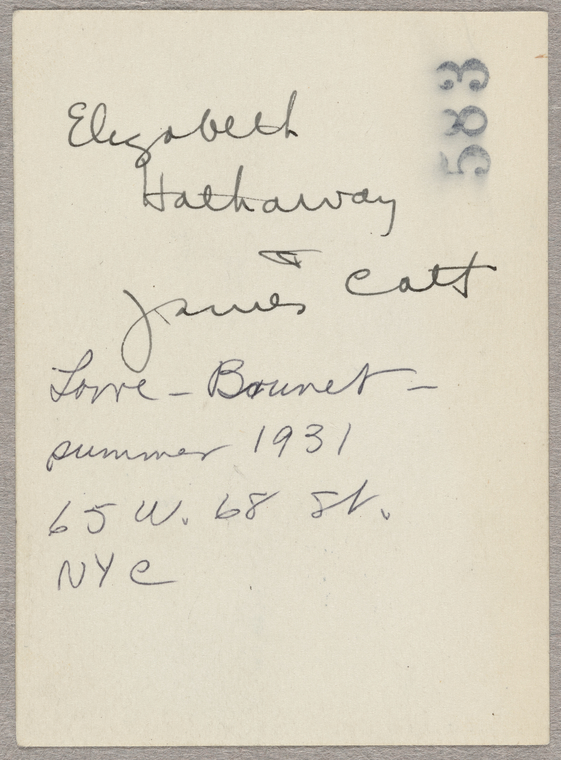 583
Elizabeth
Hathaway
+
James Catt
Lorre - Brunet -
summer 1931
65 W. 68 St.
NYC